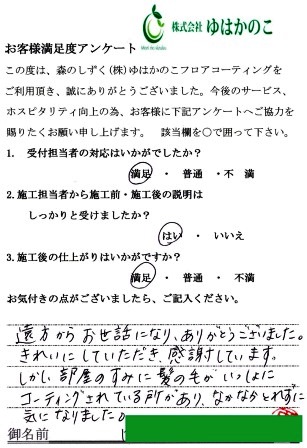 株式会社 ゆはかのこ
お客様満足度アンケート
この度は、森のしずく(株)ゆはかのこフロアコーティングを
ご利用頂き、誠にありがとうございました。今後のサービス、
ホスピタリティ向上の為、お客様に下記アンケートへご協力を
賜りたくお願い申し上げます。 該当欄を〇で囲って下さい。
1. 受付担当者の対応はいかがでしたか?
満足 ・ 普通 ・ 不満
2.施工担当者から施工前・施工後の説明は
しっかりと受けましたか?
はい ・ いいえ
3.施工後の仕上がりはいかがですか?
満足 ・ 普通 ・ 不満
お気付きの点がございましたら、ご記入ください。
遠方からお世話になり、ありがとうございました。
きれいにしていただき、感謝しています。
しかし部屋のすみに髪の毛がいっしょに
コーティングされている所があり、なかなかとれずに
気になりました。
御名前